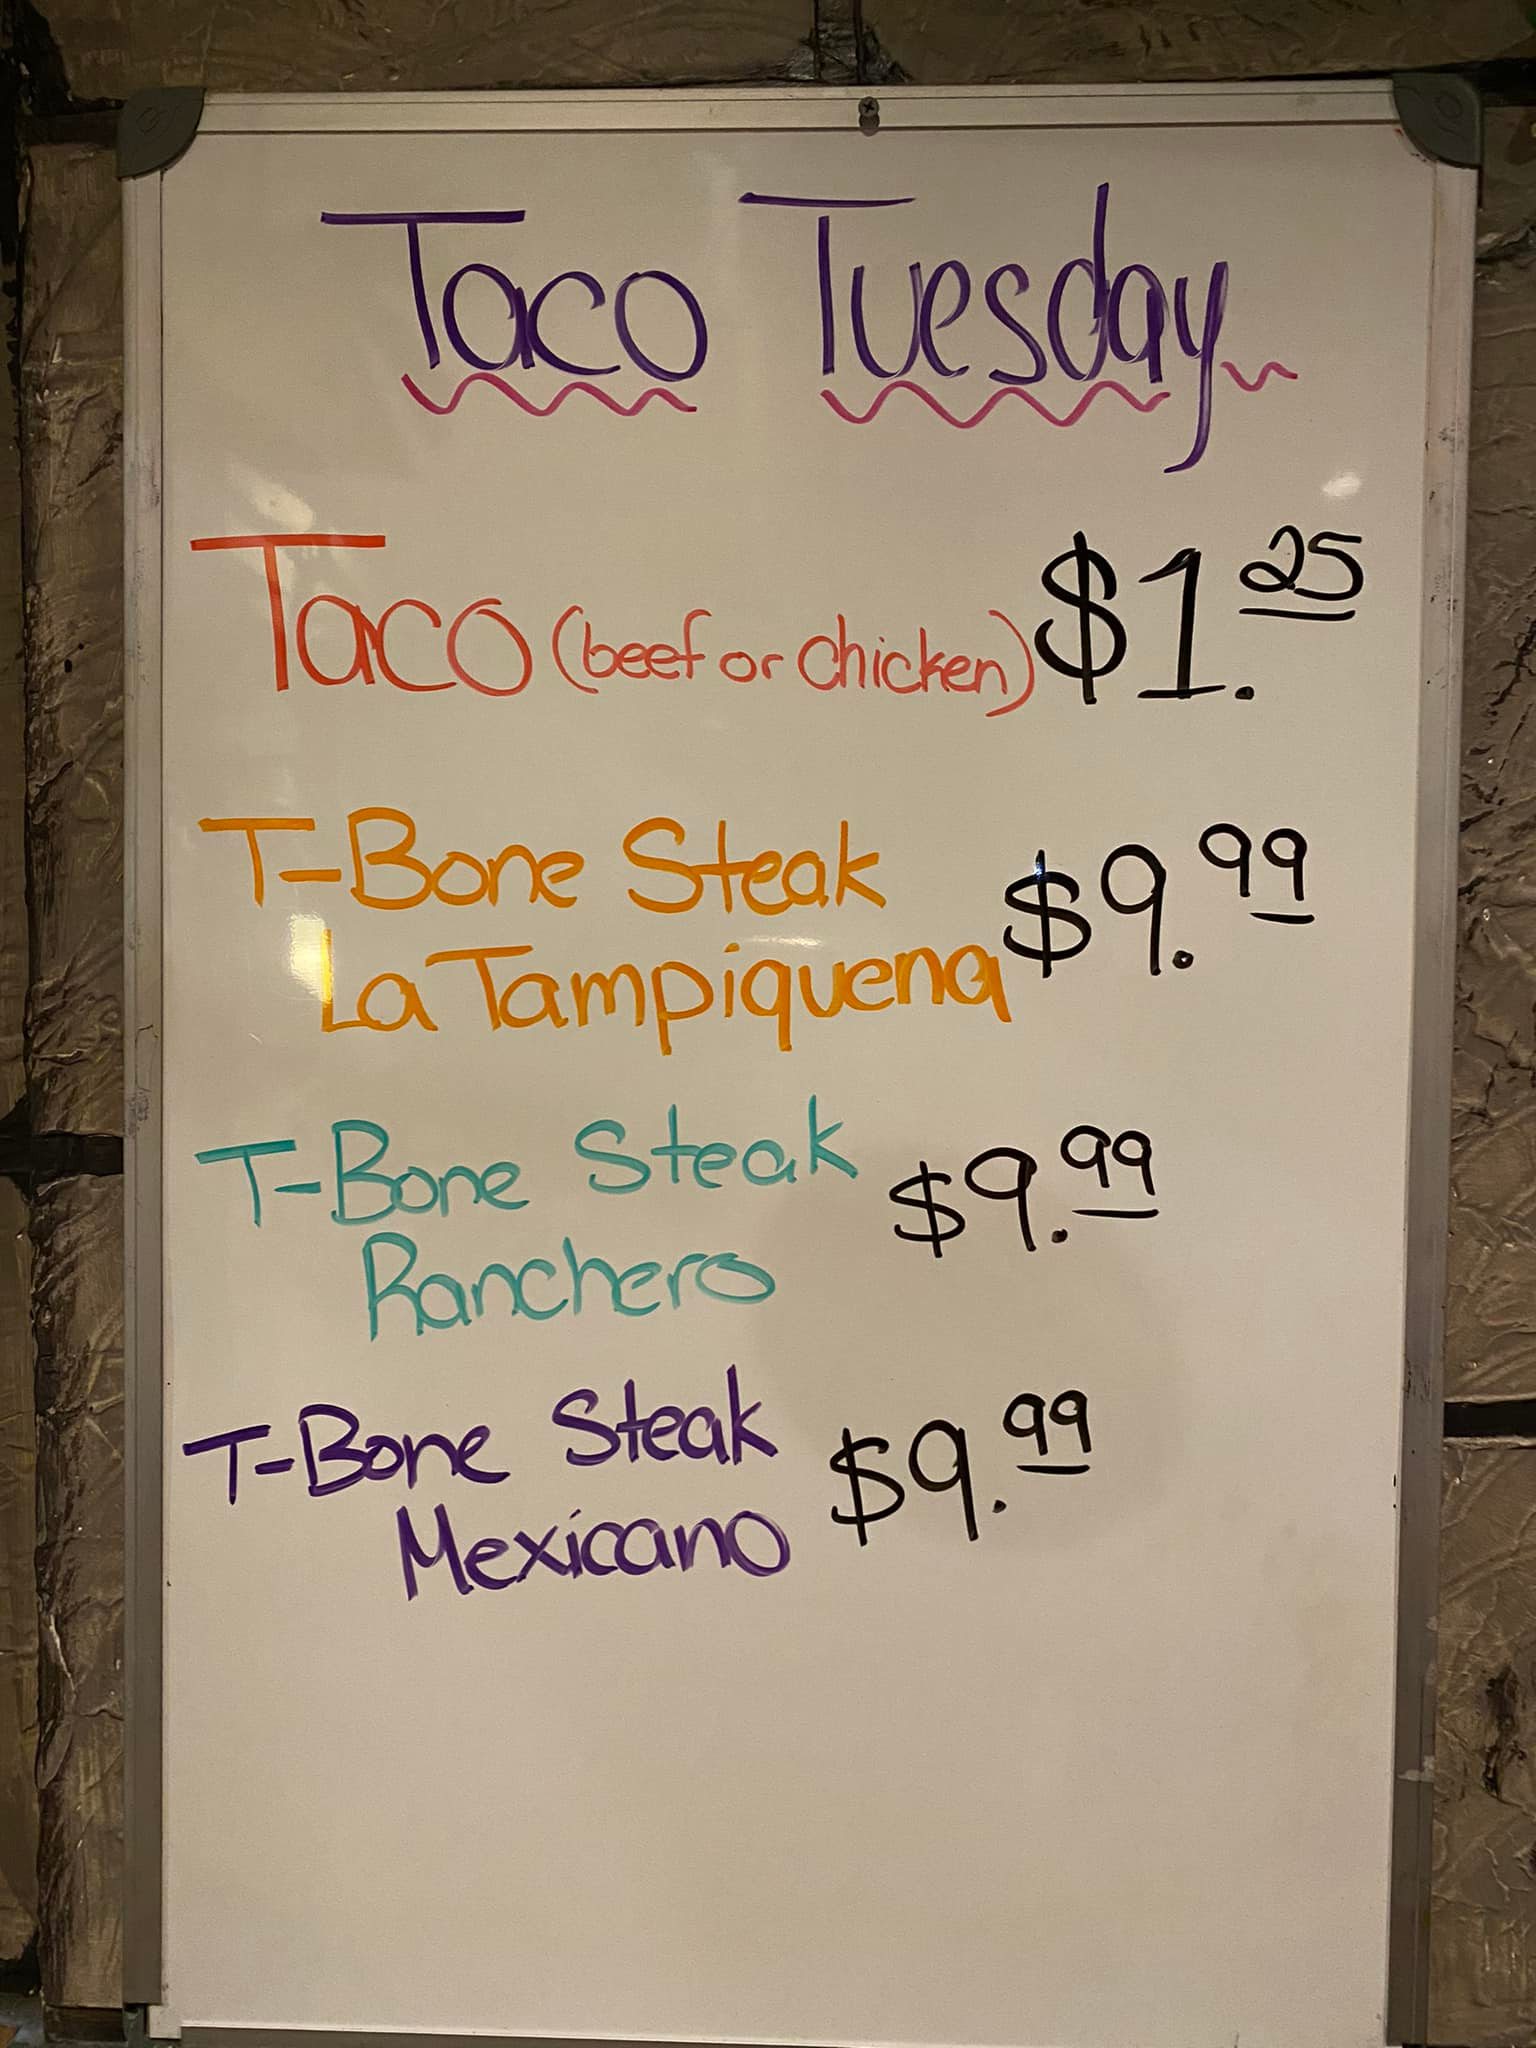 Taco Tuesday
Taco (beef or chicken) $1.25
T-Bone Steak $9.99
La Tampiquena
T-Bone Steak $9.99
Ranchero
T-Bone Steak $9.99
Mexicano